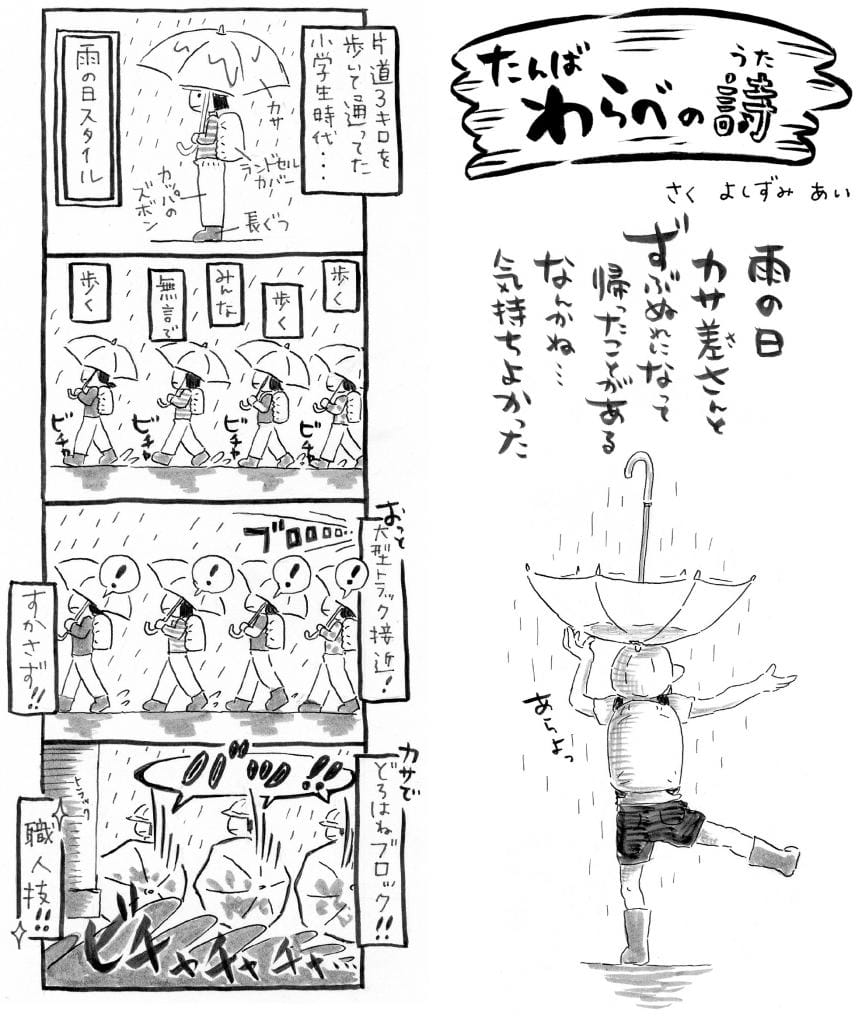 たんば
わらべの詩
うた
さく よしずみ あい
雨の日
カサ差さんと
さ
ずぶぬれになって
帰ったことがある
なんかね…
気持ちよかった
あらよっ
片道3キロを
歩いて通ってた
小学生時代・・・
雨の日スタイル
カサ
ランドセル
カバー
カッパの
ズボン
長ぐつ
歩く
歩く
みんな
無言で
歩く
ビチャ
ビチャ
ビチャ
ビチャ
おっと
大型トラック接近!
ブロロロロ…
!
!
!
!
すかさず!!
カサで
どろはねブロック!!
バッ!!
トラック
職人技!!
ビチャチャチャ…